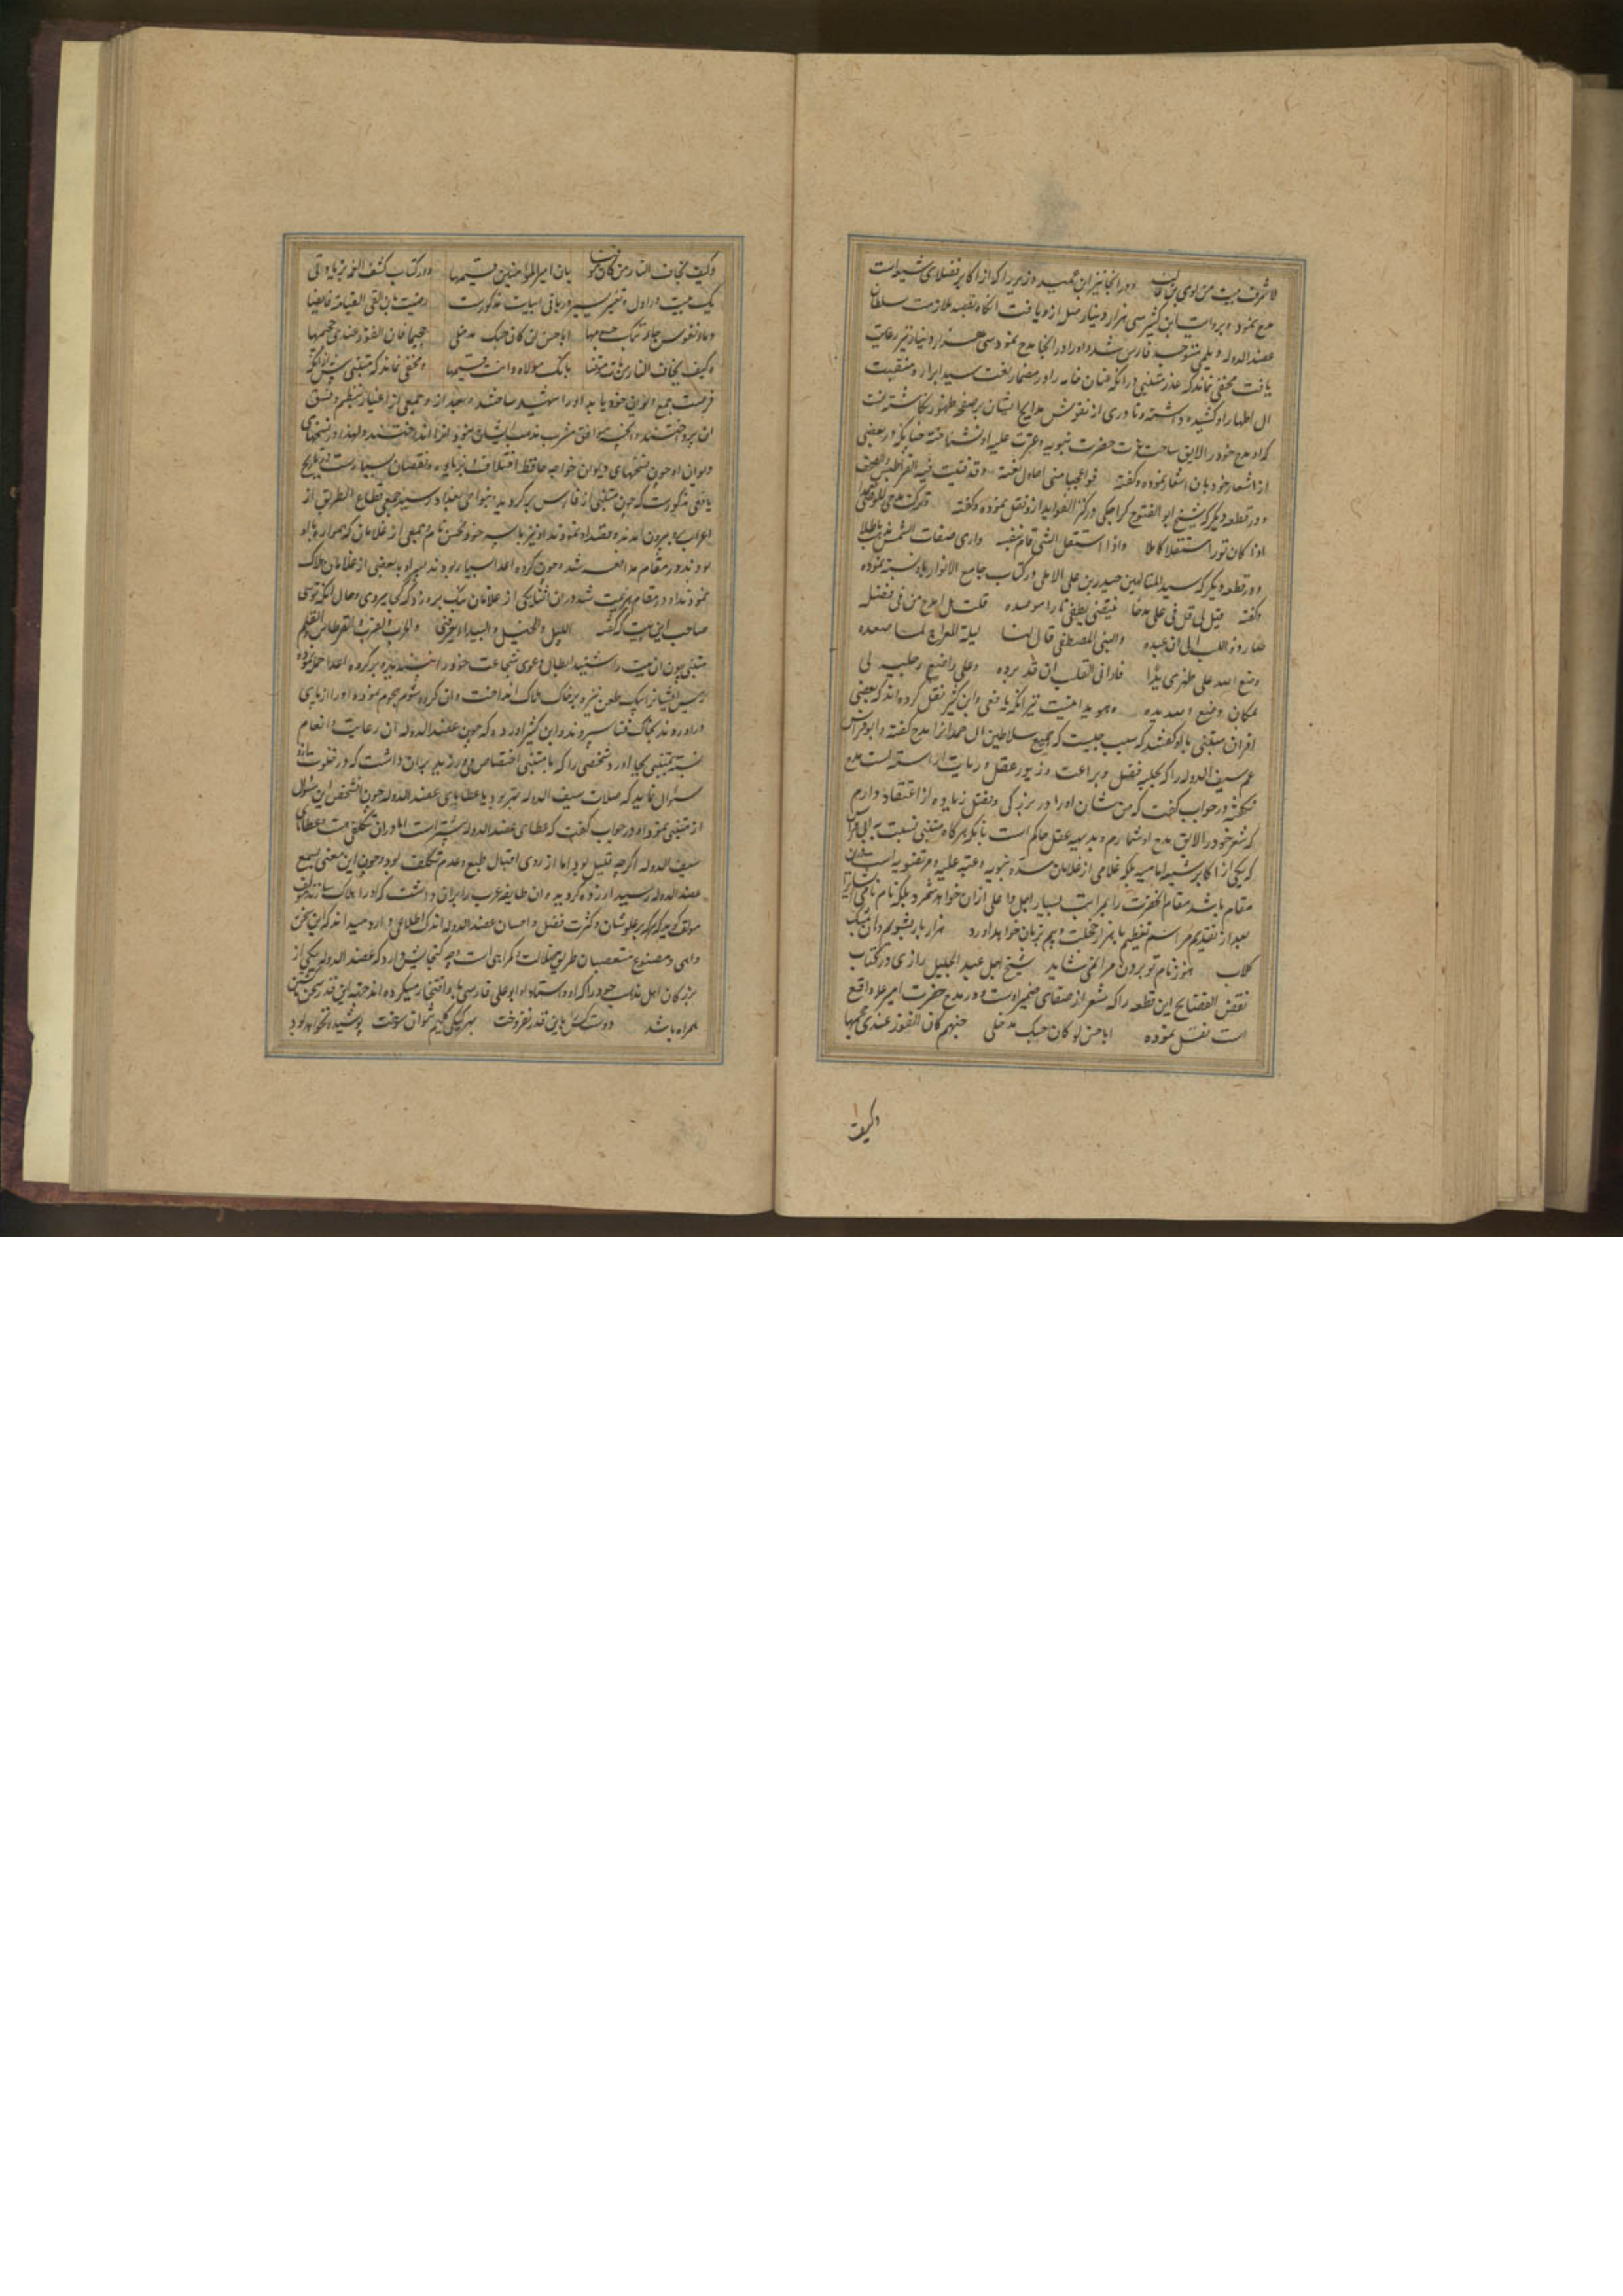 لاشرف بیت من لوی بن غالب و در انجا نیز ابن عمید وزیر را که از اکابر فضلای شیعه است
مدح نمود و بروایت ابن کثیر سی هزار دینار صله ازو یافت انکاه بقصد ملازمت سلطان
عضد الدوله دیلمی متوجه فارس شد و او را در انجا مدح نمود سی هزار دینار نیز رعایت
یافت مخفی نماند که عذر متنبی در انکه عنان خامه را در مضمار نعت سید ابرار و منقبت
ال اطهار او کشیده داشته و نادری از نقوش مدایح ایشان بر صفحه ظهور نکاشته انست
که او مدح خود را لایق ساحت عزت حضرت نبویه و عترت علیه او نشناخته چنانکه در بعضی
از اشعار خود بان اشعار نموده و کفته فواعجبا منی احاول نعته و قد فنیت فیه القراطیس والصحف
و در قطعه دیکر که شیخ ابو الفتوح کراجکی در کنز الفواید ازو نقل نموده و کفته وترکت مدحی للوصی تعمدا
اذا کان نورا مستقلا کاملا واذا استقل الشی قام بنفسه واری صفات الشمس تذهب باطلا
و در قطعه دیکر که سید المتالهین حیدر بن علی الاملی در کتاب جامع الانوار باو نسبت نموده
وکفته قیل لی قل فی علی مدحا یقتضی یطفی نارا موصده قلت لا امدح من فی فضله
حار ذو اللب الی ان عبده والنبی المصطفی قال لنا لیلة المعراج لما صعده
وضع الله علی ظهری یدا فارانی القلب ان قد برده وعلی واضع رجلیه لی
بمکان وضع الله یده و موید اینست نیز انکه یافعی و ابن کثیر نقل کرده اند که بعضی
اقران متنبی باو کفتند که سبب چیست که جمیع سلاطین ال حمدان را مدح کفته و ابو فراس
عم سیف الدوله را که بحلیه فضل و براعت و زیور عقل و رعایت اراسته است مدح
نکفته در جواب کفت که من شان او را در بزرکی و فضل زیاده از اعتقاد دارم
که شعر خود را لایق مدح او شمارم و بدیهه عقل حاکم است بانکه هرکاه متنبی نسبت به ابی فراس
که یکی از اکابر شیعه امامیه بلکه غلامی از غلامان سده نبویه و عتبه علیه مرتضویه است درین
مقام باشد مقام انحضرت را بمراتب بسیار اجل و اعلی ازان خواهد شمرد بلکه نام نامی ایشان را
بعد از تقدیم مراسم تعظیم با هزار خجلت و بیم بزبان خواهد اورد هزار بار بشویم دهان بمشک
کلاب هنوز نام تو بردن مرا نمی شاید شیخ اجل عبد الجلیل رازی در کتاب
نقض الفضایح این قطعه را که مشعر از صفای ضمیر اوست و در مدح حضرت امیر علیه واقع
است نقل نموده ابا حسن لو کان حبک مدخلی جهنم کان الفوز عندی جحیمها
وکیف
وکیف یخاف النار من کان موقنا بان امیر المومنین قسیمها و در کتاب کشف الغمه نیز با توافق
یک بیت در اول و تغییر یسیر در باقی ابیات مذکورست رضیت بان القی القیامة خایضا
دماء نفوس حاربتک جسومها ابا حسن ان کان حبک مدخلی جحیما فان الفوز عندی جحیمها
وکیف یخاف النار من بات موقنا بانک مولاه وانت قسیمها و مخفی نماند که متنبی پیش از انکه
فرصت جمع دیوان خود یابد او را شهید ساختند و بعد از و جمعی از اغیار بنظم و نسق
ان پرداختند و انچه موافق مشرب مذهب ایشان نبود از انجا انداختند ولهذا در نسخهای
دیوان او چون نسخهای دیوان خواجه حافظ اختلاف زیاده و نقصان بسیارست و در تاریخ
یافعی مذکورست که چون متنبی از فارس برکردید و بنواحی بغداد رسید جمعی قطاع الطریق از
اعراب بیرون امدند و قصد او نمودند او نیز با پسر خود محسن نام و جمعی از غلامان که همراه او
بودند در مقام مدافعه شد و چون کروه اعدا بسیار بودند پسر او با بعضی از غلامان هلاک
نمودند او در مقام هزیمت شد درین اثنا یکی از غلامان بانک برو زد که کجا میروی و حال انکه تویی
صاحب این بیت که شعر اللیل والخیل والبیداء تعرفنی والحرب والضرب والقرطاس والقلم
متنبی چون ان بیت را شنید ابطال دعوی شجاعت خود را نپسندیده بر کروه اعدا حمله نموده
رییس ایشانرا بیک طعن نیزه بر خاک هلاک انداخت و ان کروه شوم هجوم نموده او را از پای
دراوردند بخاک فنا سپردند و ابن کثیر اورده که چون عضد الدوله ان رعایت و انعام
نسبت بمتنبی بجا اورد شخصی را که با متنبی اختصاص می ورزید بران داشت که در خلوت ازو
سئوال نماید که صلات سیف الدوله بهتر بود یا عطایای عضد الدوله چون انشخص این سئوال
از متنبی نمود او در جواب کفت که عطای عضد الدوله بیشتر است اما در ان تکلفی هست و عطای
سیف الدوله اکرچه قلیل بود اما از روی اقبال طبع و عدم تکلف بود و چون این معنی بسمع
عضد الدوله رسید ازرده کردید و ان طایفه عرب را بران داشت که او را هلاک سازند مولف
مولف کوید که هر که بر علو شان و کثرت فضل و احسان عضد الدوله اندک اطلاعی دارد میداند که این سخن
واهی و مصنوع متعصبان طریق ضلالت و کمراهی است و چه کنجایش دارد که عضد الدوله یکی از
بزرکان اهل مذهب خود را که او و استاد او ابو علی فارسی باو افتخار میکرده اند بجهة این قدر سخن
همراه باشد دوست کس را باین قدر نفروخت بهر کیکی کلیم نتوان سوخت پوشیده نخواهد بود